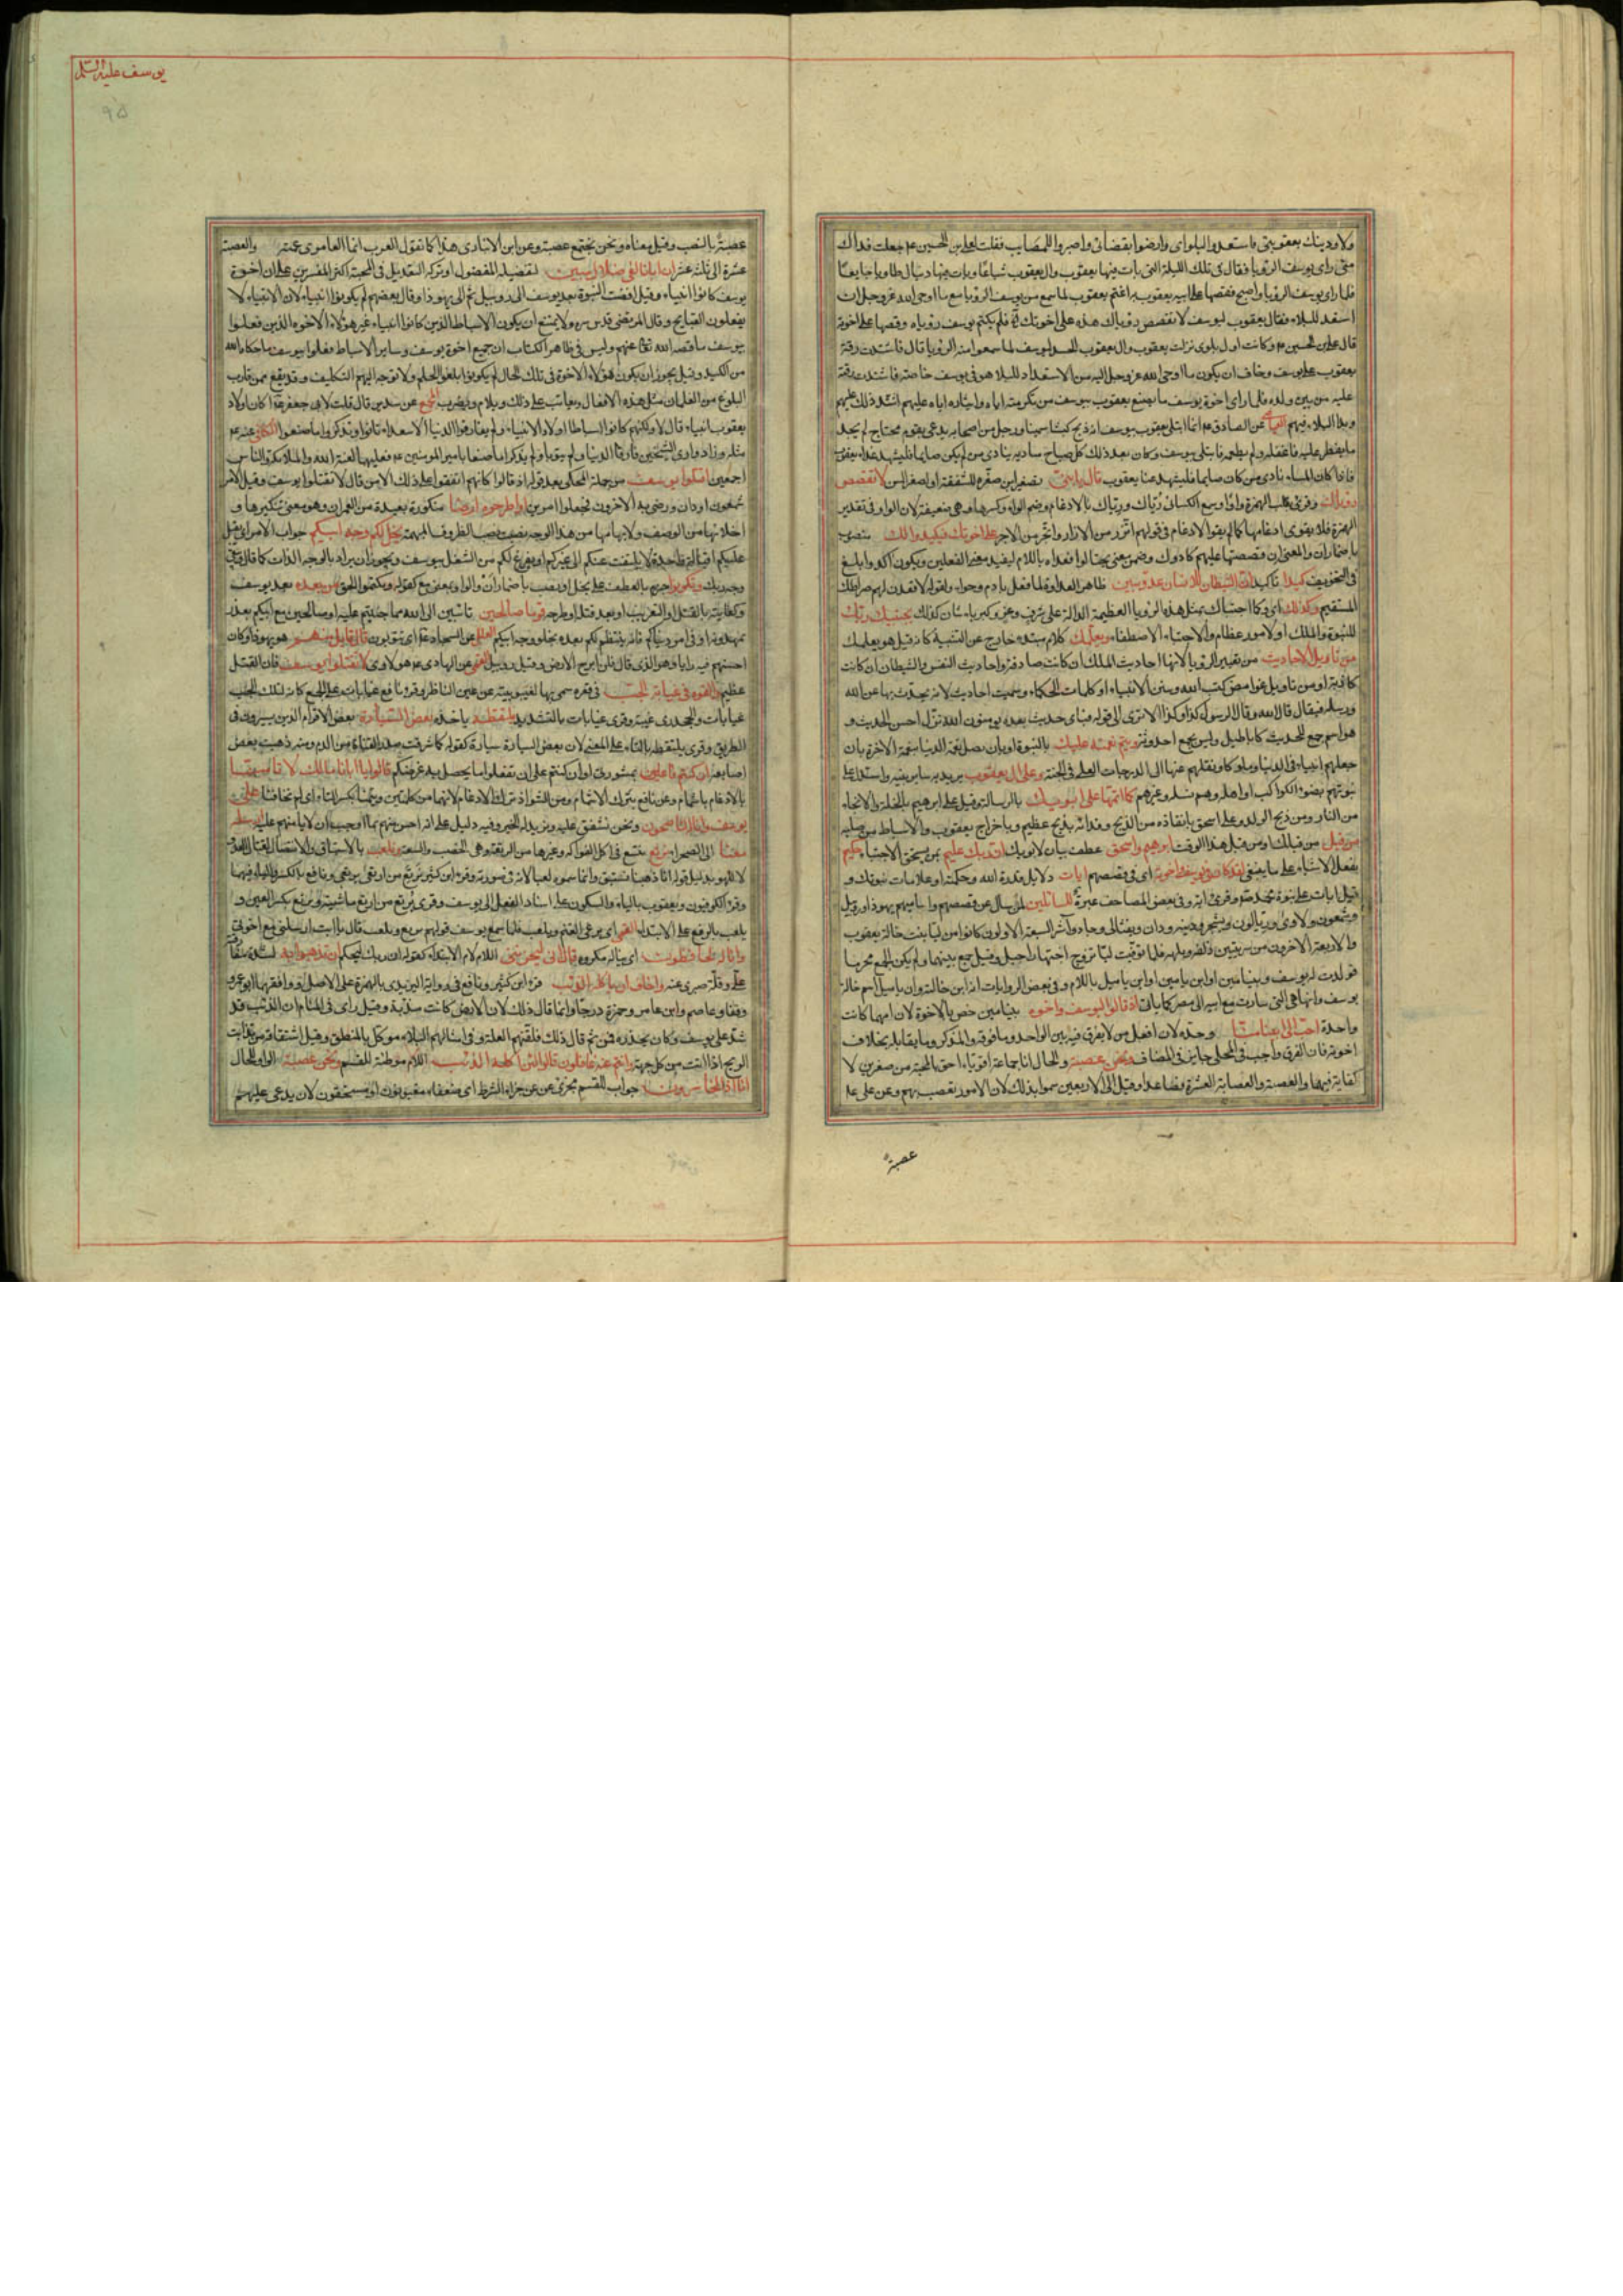 ولاودينك بعقوبتى فاستعدوا لبلواى وارضوا بقضائى واصبروا للمصايب فقلت لعلى بن الحسين ع جعلت فداك
متى راى يوسف الرؤيا فقال فى تلك الليلة التى بات فيها يعقوب وال يعقوب شباعا وبات فيها دميال طاويا جايعا
فلما راى يوسف الرؤيا واصبح فقصها على ابيه يعقوب فاغتم يعقوب لما سمع من يوسف الرؤيا مع ما اوحى الله عز وجل ان
استعد للبلاء فقال يعقوب ليوسف لا تقصص رؤياك هذه على اخوتك فلم يكتم يوسف رؤياه وقصها على اخوته
قال على بن الحسين ع وكانت اول بلوى نزلت بيعقوب وال يعقوب الحسد ليوسف لما سمعوا منه الرؤيا قال فاشتدت رقة
يعقوب على يوسف وخاف ان يكون ما اوحى الله عز وجل اليه من الاستعداد للبلاء هو فى يوسف خاصته فاشتدت رقته
عليه من بين ولده فلما راى اخوة يوسف ما يصنع يعقوب بيوسف من تكرمته اياه وايثاره اياه عليهم اشتد ذلك عليهم
وبدا البلاء فيهم عن الصادق ع انما ابتلى يعقوب بيوسف اذ ذبح كبشا سمينا ورجل من اصحابه يدعى بقوم محتاج لم يجد
ما يفطر عليه فاغفله ولم يطعمه فابتلى بيوسف وكان بعد ذلك كل صباح مناديه ينادى من لم يكن صايما فليشهد غداء يعقوب
فاذا كان المساء نادى من كان صايما فليشهد عشا يعقوب قال يا بنى تصغير ابن صغره للشفقة او لصغر السن لا تقصص
رؤياك وقرئ بقلب الهمزة واوا وسمع الكسائى رُيّاك ورِيّاك بالادغام وضم الراء وكسرها وهى ضعيفة لان الواو فى تقدير
الهمزة فلا يقوى ادغامها كما لم يقو الادغام فى قولهم اتّزر من الازار واتّجر من الاجر على اخوتك فيكيدوا لك منصوب
باضمار ان والمعنى ان قصصتها عليهم كادوك وضمن معنى يحتالوا فعداه باللام ليفيد معنى الفعلين ويكون اكد وابلغ
فى التخويف كيدا تاكيد ان الشيطان للانسان عدو مبين ظاهر العداوة لما فعل بادم وحواء ولقوله لاقعدن لهم صراطك
المستقيم وكذلك اى وكما اجتباك بمثل هذه الرؤيا العظيمة الدالة على شرف وعز وكبرياء شان كذلك يجتبيك ربك
للنبوة والملك او لامور عظام والاجتباء الاصطفاء ويعلمك كلام مبتدء خارج عن التشبيه كانه قيل هو يعلمك
من تاويل الاحاديث من تعبير الرؤيا لانها احاديث الملك ان كانت صادقة واحاديث النفس والشيطان ان كانت
كاذبة او من تاويل غوامض كتب الله وسنن الانبياء او كلمات الحكماء وسميت احاديث لانه يحدث بها عن الله
ورسله فيقال قال الله وقال الرسول كذا وكذا الا ترى الى قوله فباى حديث بعده يومنون الله نزل احسن الحديث و
هو اسم جمع للحديث كاباطيل وليس بجمع احدوثة ويتم نعمته عليك بالنبوة او بان يصل نعمة الدنيا بنعمة الاخرة بان
جعلهم انبياء فى الدنيا وملوكا ونقلهم عنها الى الدرجات العلى فى الجنة وعلى ال يعقوب يريد به ساير بنيه واستدل على
نبوتهم بضوء الكواكب او اهله وهم نسله وغيرهم كما اتمها على ابويك بالرسالة وقيل على ابرهيم بالخلة والانجاء
من النار ومن ذبح الولد وعلى اسحق بانقاذه من الذبح وفدائه بذبح عظيم وباخراج يعقوب والاسباط من صلبه
من قبل من قبلك او من قبل هذا الوقت ابرهيم واسحق عطف بيان لابويك ان ربك عليم بمن يستحق الاجتباء حكيم
يفعل الاشياء على ما ينبغى لقد كان فى يوسف واخوته اى فى قصصهم ايات دلايل قدرة الله وحكمته او علامات نبوتك و
قيل ايات على نبوة محمد ص وقرئ اية وفى بعض المصاحف عبرة للسائلين لمن سال عن قصصهم واساميهم يهوذا وروبيل
وشمعون ولاوى وربالون ويشجر ودينه ودان ويفتالى وجاد وآشر السبعة الاولون كانوا من ليا بنت خالة يعقوب
والاربعة الاخرون من سريتين زلفه وبلهه فلما توفيت ليا تزوج اختها راحيل وقيل جمع بينهما ولم يكن الجمع محرما
فولدت له يوسف وبنيامين او ابن يامين او ابن ياميل باللام وفى بعض الروايات انه ابن خالته وان ياميل اسم خالة
يوسف وانها هى التى سارت مع ابيه الى مصر كما ياتى اذ قالوا ليوسف واخوه بنيامين خص بالاخوة لان امهما كانت
واحدة احب الى ابينا منا وحده لان افعل من لا يفرق فيه بين الواحد وما فوقه والمذكر وما يقابله بخلاف
اخوته فان الفرق واجب فى المحلى جايز فى المضاف ونحن عصبة والحال انا جماعة اقوياء احق بالمحبة من صغيرين لا
كفاية فيهما والعصبة والعصابة العشرة فصاعدا وقيل الى الاربعين سموا بذلك لان الامور تعصب بهم وعن على ع
عصبة
يوسف عليه السلم
٩۵
عصبةً بالنصب وقيل معناه ونحن نجتمع عصبة وعن ابن الانبارى هذا كما تقول العرب انما العامرى عمته والعصبة
عشرة الى ثلثة عشر ان ابانا لفى ضلال مبين لتفضيله المفضول او تركه التعديل فى المحبة اكثر المفسرين على ان اخوة
يوسف كانوا انبياء وقيل افضت النبوة بعد يوسف الى روبيل ثم الى يهوذا وقال بعضهم لم يكونوا انبياء لان الانبياء لا
يفعلون القبايح وقال المرتضى قدس سره ولا يمتنع ان يكون الاسباط الذين كانوا انبياء غير هؤلاء الاخوة الذين فعلوا
بيوسف ما قصه الله تعالى عنهم وليس فى ظاهر الكتاب ان جميع اخوة يوسف وساير الاسباط فعلوا بيوسف ما حكاه الله
من الكيد وقيل يجوز ان يكون هؤلاء الاخوة فى تلك الحال لم يكونوا بلغوا الحلم ولا توجه اليهم التكليف وقد يقع ممن قارب
البلوغ من الغلمان مثل هذه الافعال ويعاتب على ذلك ويلام ويضرب المجمع عن سدير قال قلت لابى جعفر ع اكان اولاد
يعقوب انبياء قال لا ولكنهم كانوا اسباطا اولاد الانبياء ولم يفارقوا الدنيا الا سعداء تابوا وتذكروا ما صنعوا الكافى عنه ع
مثله وزاد وان الشيخين فارقا الدنيا ولم يتوبا ولم يذكرا ما صنعا بامير المومنين ع فعليهما لعنة الله والملائكة والناس
اجمعين اقتلوا يوسف من جملة المحكى بعد قوله اذ قالوا كانهم اتفقوا على ذلك الا من قال لا تقتلوا يوسف وقيل الامر
شمعون او دان ورضى به الاخرون فجعلوا امرين او اطرحوه ارضا منكورة بعيدة من العمران وهو معنى تنكيرها و
اخلائها من الوصف ولابهامها من هذا الوجه نصبت نصب الظروف المبهمة يخل لكم وجه ابيكم جواب الامر اى يقبل
عليكم اقبالة واحدة لا يلتفت عنكم الى غيركم او يفرغ لكم من الشغل بيوسف ويجوز ان يراد بالوجه الذات كما قال ويبقى
وجه ربك وتكونوا جزم بالعطف على يخل او نصب باضمار ان والواو بمعنى مع كقوله وتكتموا الحق من بعده بعد يوسف
وكفايته بالقتل او التغريب او بعد قتله او طرحه قوما صالحين تائبين الى الله مما جنيتم عليه او صالحين مع ابيكم بعذر
تمهدونه او فى امور دنياكم فانه ينتظم لكم بعده بخلو وجه ابيكم العلل عن السجاد ع اى تتوبون قال قايل منهم هو يهوذا وكان
احسنهم فيه رايا وهو الذى قال فلن ابرح الارض وقيل روبيل القمى عن الهادى ع هو لاوى لا تقتلوا يوسف فان القتل
عظيم والقوه فى غيابة الجب فى قعره سمى بها لغيبوبته عن عين الناظر وقرء نافع غيابات على الجمع كانه لتلك الجب
غيابات والجحدرى غيبة وقرئ غيابات بالتشديد يلتقطه ياخذه بعض السيارة بعض الاقوام الذين يسيرون فى
الطريق وقرئ يلتقطه بالتاء على المعنى لان بعض السيارة سيارة كقوله كما شرقت صدر القناة من الدم ومنه ذهبت بعض
اصابعه ان كنتم فاعلين بمشورتى او ان كنتم على ان تفعلوا ما يحصل به غرضكم قالوا يا ابانا مالك لا تامننا
بالادغام باشمام وعن نافع بترك الاشمام ومن الشواذ ترك الادغام لانهما من كلمتين وتيمنا بكسر التاء اى لم تخافنا على
يوسف وانا له لناصحون ونحن نشفق عليه ونريد له الخير وفيه دليل على انه احس منهم بما اوجب ان لا يامنهم عليه ارسله
معنا الى الصحراء نرتع نتسع فى اكل الفواكه وغيرها من الرتعة وهى الخصب والسعة ونلعب بالاستباق والانتضال لقتال العدو
لا للهو بدليل قوله انا ذهبنا نستبق وانما سموه لعبا لانه فى صورته وقرء ابن كثير نرتع من ارتعى يرتعى ونافع بالكسر والياء فيهما
وقرء الكوفيون ويعقوب بالياء والسكون على اسناد الفعل الى يوسف وقرئ يُرتع من ارتع ماشيته ويرتع بكسر العين و
يلعب بالرفع على الابتداء القمى اى يرعى الغنم ويلعب فلما سمع يوسف قولهم نرتع ونلعب قال يا ابت ارسلنى مع اخوتى
وانا له لحافظون اى يناله مكروه قال انى ليحزننى اللام لام الابتداء كقوله ان ربك ليحكم ان تذهبوا به لشدة مفارقته
على وقلة صبرى عنه واخاف ان ياكله الذئب قرء ابن كثير ونافع فى رواية اليزيدى بالهمزة على الاصل ووافقهما ابو عمرو
وقفا وعاصم وابن عامر وحمزة درجا وانما قال ذلك لان الارض كانت مذئبة وقيل راى فى المنام ان الذئب قد
شد على يوسف وكان يحذره فمن ثم قال ذلك فلقنهم العلة وفى امثالهم البلاء موكل بالمنطق وقيل اشتقاقه من تذايبت
الريح اذا اتت من كل جهة وانتم عنه غافلون قالوا لئن اكله الذئب اللام موطئة للقسم ونحن عصبة الواو للحال
انا اذا لخاسرون جواب القسم يجزئ عن جزاء الشرط اى ضعفاء مغبونون او مستحقون لان يدعى عليهم